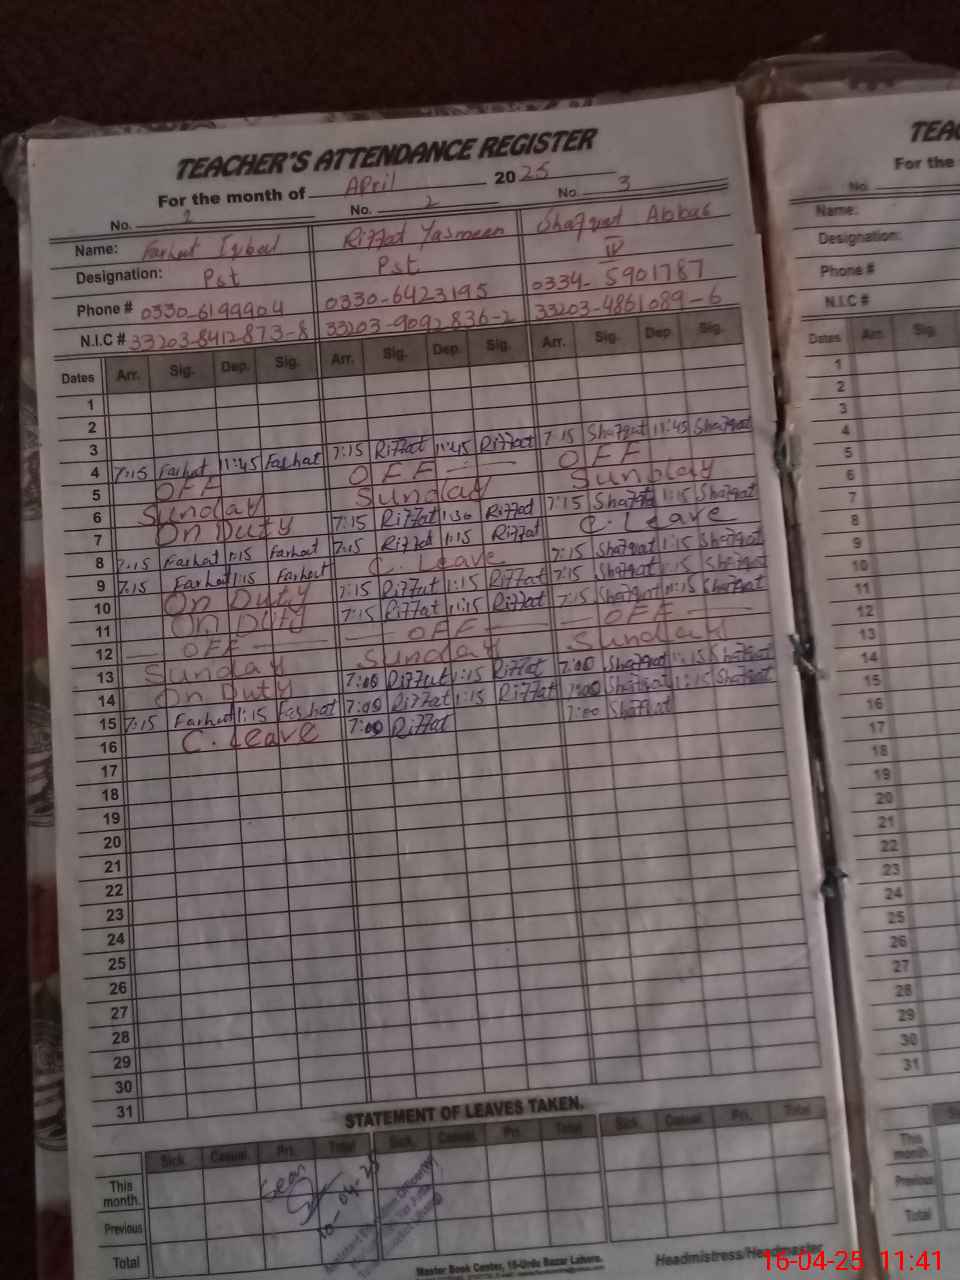 TEACHER'S ATTENDANCE REGISTER
For the month of April 2025
No. 2 No. 3
Name: Farhat Iqbal Riffat Yasmeen Shafqat Abbas
Designation: Pst Pst
Phone # 0330-6199904 0330-6423195 0334-5901787
N.I.C # 33203-8412873-8 33203-9092836-2 33203-4861089-6
Dates Arr. Sig. Dep. Sig. Arr. Sig. Dep. Sig. Arr. Sig. Dep. Sig.
1
2
3
4 7:15 Farhat 11:45 Farhat 7:15 Riffat 11:45 Riffat 7:15 Shafqat 11:45 Shafqat
5 OFF OFF OFF
6 Sunday Sunday Sunday
7 On Duty 7:15 Riffat 1:30 Riffat 7:15 Shafqat 1:15 Shafqat
8 7:15 Farhat 1:15 Farhat 7:15 Riffat 1:15 Riffat C. Leave
9 7:15 Farhat 1:15 Farhat C. Leave 7:15 Shafqat 1:15 Shafqat
10 On Duty 7:15 Riffat 1:15 Riffat 7:15 Shafqat 1:15 Shafqat
11 On Duty 7:15 Riffat 11:15 Riffat 7:15 Shafqat 11:15 Shafqat
12 OFF OFF OFF
13 Sunday Sunday Sunday
14 On Duty 7:00 Riffat 1:15 Riffat 7:00 Shafqat 1:15 Shafqat
15 7:15 Farhat 1:15 Farhat 7:00 Riffat 1:15 Riffat 7:00 Shafqat 1:15 Shafqat
16 C. Leave 7:00 Riffat 7:00 Shafqat
17
18
19
20
21
22
23
24
25
26
27
28
29
30
31
STATEMENT OF LEAVES TAKEN.
Sick. Casual. Pri. Total Sick. Casual. Pri. Total Sick. Casual. Pri. Total
This month.
Seen
10-04-25
Previous
Total
Master Book Center, 18-Urdu Bazar Lahore.
Headmistress/Headmaster
TEAC
For the
No.
Name:
Designation:
Phone #
N.I.C #
Dates Arr. Sig.
1
2
3
4
5
6
7
8
9
10
11
12
13
14
15
16
17
18
19
20
21
22
23
24
25
26
27
28
29
30
31
This month.
Previous
Total
16-04-25 11:41